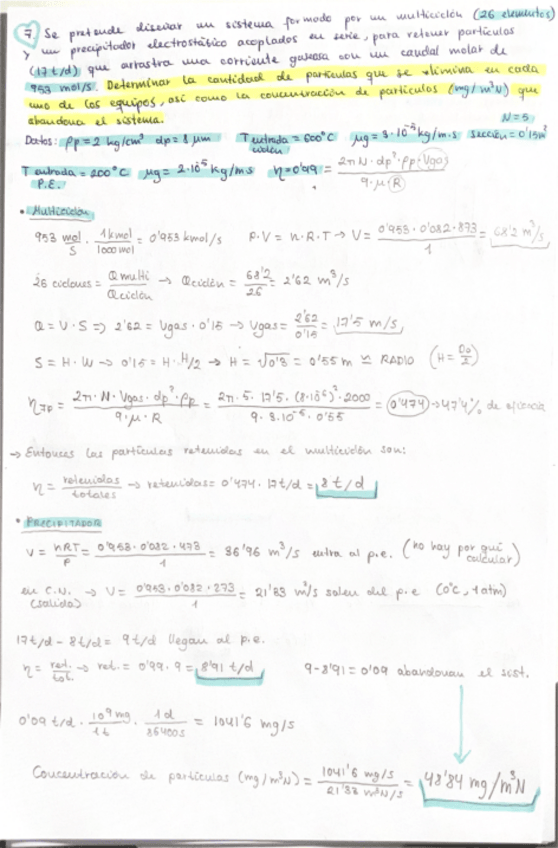 7 Se pretende diseñar un sistema formado por un multiciclón (26 elementos)
y un precipitador electrostático acoplados en serie, para retener partículas
(17 t/d) que arrastra una corriente gaseosa con un caudal molar de
953 mol/s. Determinar la cantidad de partículas que se elimina en cada
uno de los equipos, así como la concentración de partículas (mg/m³N) que
abandona el sistema. N=5
Datos: ρp=2 kg/cm³ dp=8 μm T entrada ciclón = 600°C μg=3·10⁻⁵ kg/m·s sección=0'15m²
T entrada P.E. = 200°C μg=2·10⁻⁵ kg/m·s η=0'99 = 2πN·dp²·ρp·Vgas / 9·μ·R
• Multiciclón
953 mol/s · 1 kmol/1000 mol = 0'953 kmol/s P·V = n·R·T → V = 0'953·0'082·873 / 1 = 68'2 m³/s
26 ciclones = Q multi / Q ciclón → Q ciclón = 68'2/26 = 2'62 m³/s
Q = V·S => 2'62 = Vgas·0'15 → Vgas = 2'62/0'15 = 17'5 m/s
S = H·W → 0'15 = H·H/2 → H = √0'3 = 0'55 m ≃ RADIO (H = D₀/2)
= 2π·N·Vgas·dp²·ρp / 9·μ·R = 2π·5·17'5·(8·10⁻⁶)²·2000 / 9·3·10⁻⁵·0'55 = 0'474 → 47'4% de eficiencia
→ Entonces las partículas retenidas en el multiciclón son:
η = retenidas/totales → retenidas = 0'474·17 t/d = 8 t/d
• PRECIPITADOR
V = nRT/P = 0'953·0'082·473 / 1 = 36'96 m³/s entra al p.e. (no hay por qué calcular)
en C.N. (salida) → V = 0'953·0'082·273 / 1 = 21'33 m³/s salen del p.e (0°C, 1 atm)
17 t/d - 8 t/d = 9 t/d llegan al p.e.
η = ret./tot. → ret. = 0'99·9 = 8'91 t/d 9-8'91 = 0'09 abandonan el sist.
0'09 t/d · 10⁹ mg/1t · 1d/86400s = 1041'6 mg/s
Concentración de partículas (mg/m³N) = 1041'6 mg/s / 21'33 m³N/s = 48'84 mg/m³N